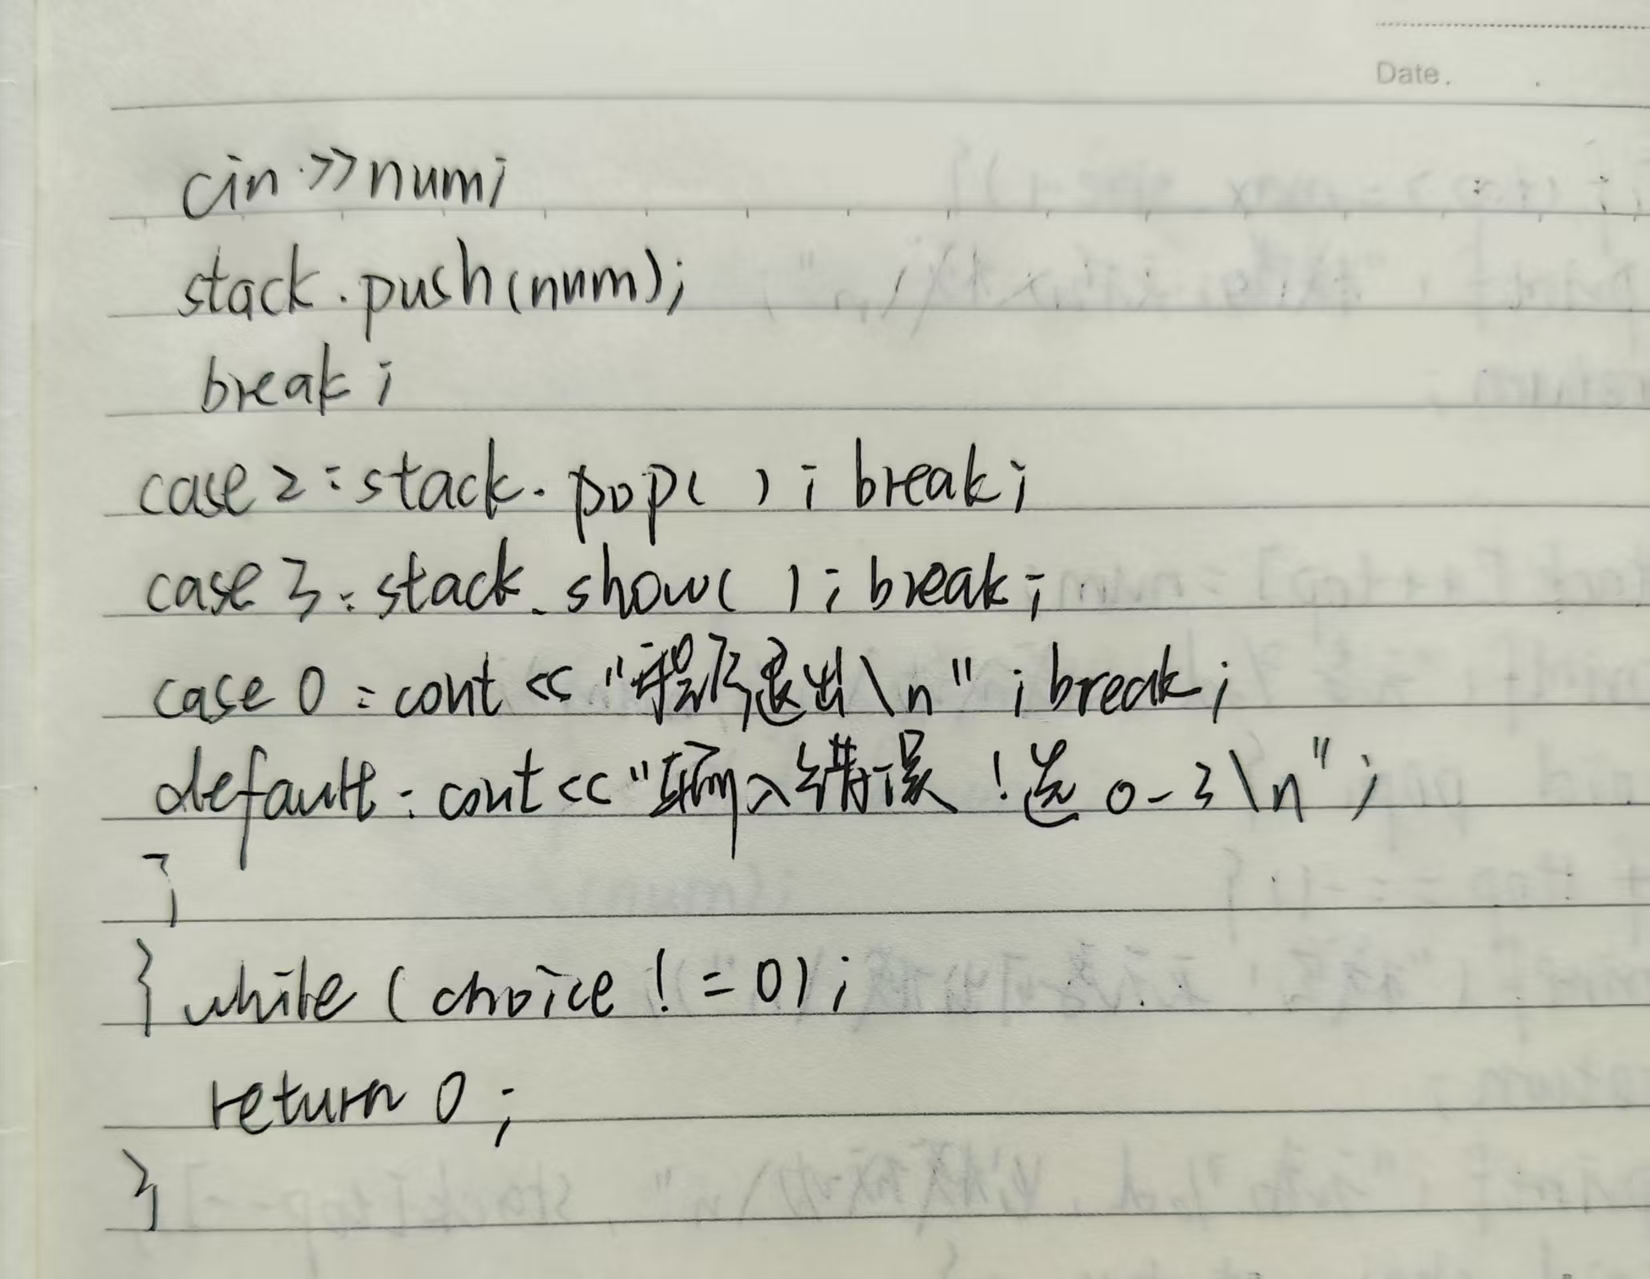 Date.
cin>>num;
stack.push(num);
break;
case 2:stack.pop( );break;
case 3:stack.show( );break;
case 0:cout<<"程序退出\n";break;
default:cout<<"输入错误!选0-3\n";
}
} while(choice!=0);
return 0;
}